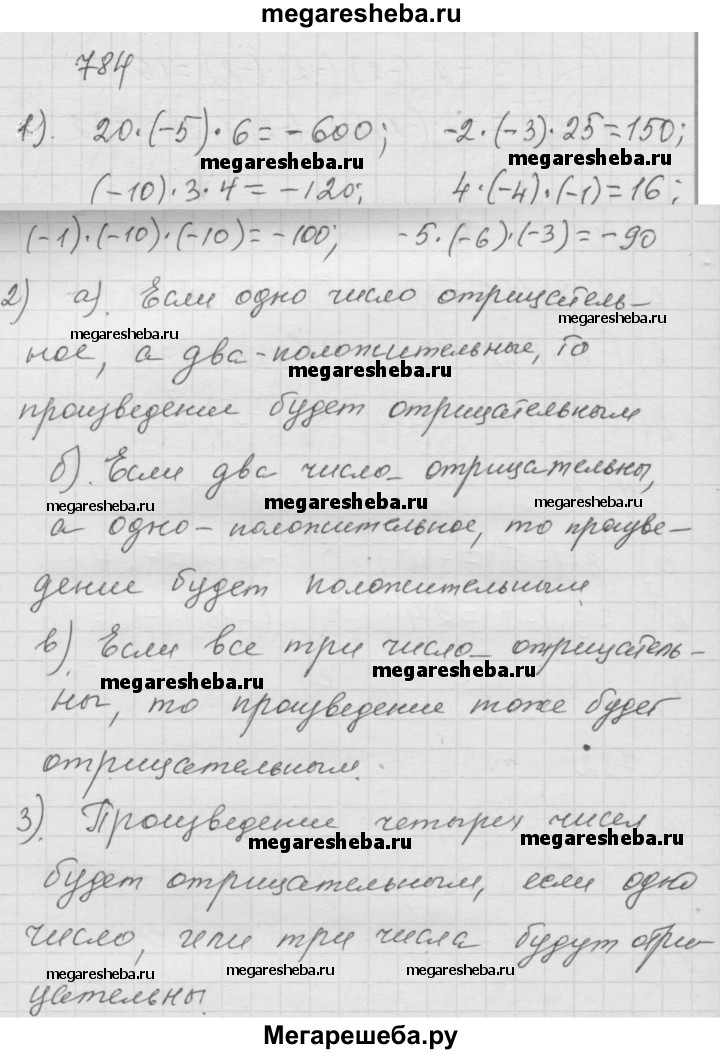 megaresheba.ru
784
1). 20·(-5)·6=-600; -2·(-3)·25=150;
megaresheba.ru megaresheba.ru
(-10)·3·4=-120; 4·(-4)·(-1)=16;
(-1)·(-10)·(-10)=-100; -5·(-6)·(-3)=-90
2) а). Если одно число отрицатель-
megaresheba.ru megaresheba.ru
ное, а два-положительные, то
megaresheba.ru
произведение будет отрицательным
б). Если два число- отрицательны,
megaresheba.ru megaresheba.ru megaresheba.ru
а одно-положительное, то произве-
дение будет положительным
в) Если все три число- отрицатель-
megaresheba.ru megaresheba.ru
ны, то произведение тоже будет
отрицательным.
3). Произведение четырех чисел
megaresheba.ru megaresheba.ru
будет отрицательным, если одно
число, или три числа будут отри-
megaresheba.ru megaresheba.ru megaresheba.ru megaresheba.ru
цательны.
Мегарешеба.ру